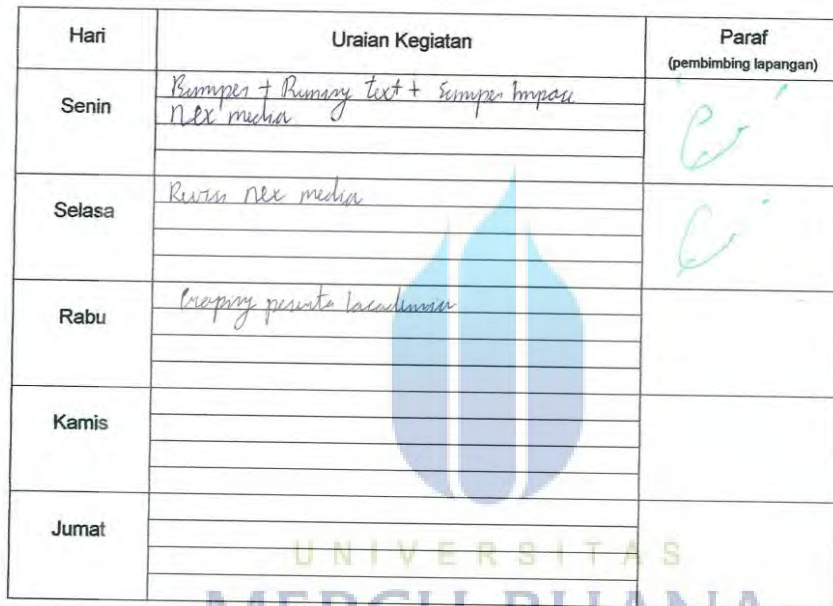 Hari Uraian Kegiatan Paraf
(pembimbing lapangan)
Senin
Bumper + Running text + Super Impose
nex media
Selasa
Revisi nex media
Rabu
Croping peserta
Kamis
Jumat
UNIVERSITAS
MERCU BUANA